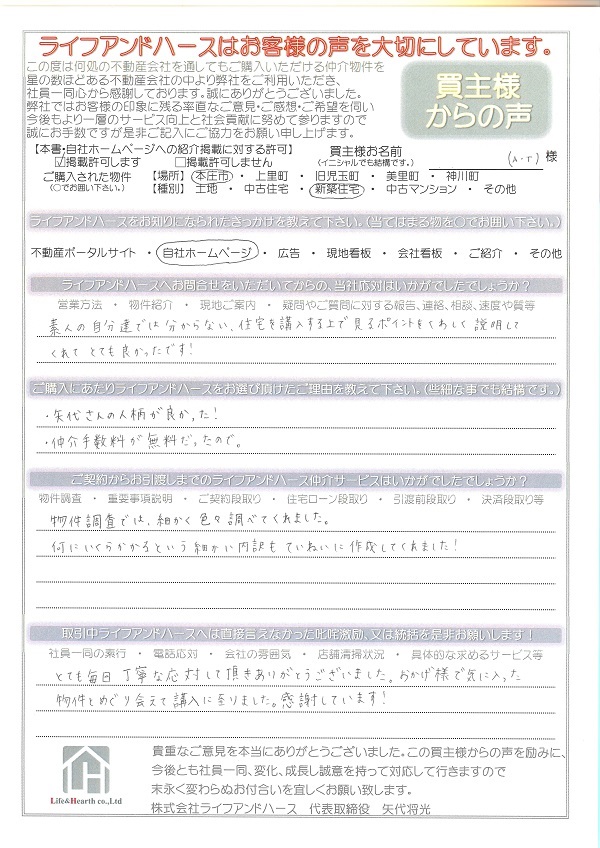 ライフアンドハースはお客様の声を大切にしています。
この度は何処の不動産会社を通してもご購入いただける仲介物件を
星の数ほどある不動産会社の中より弊社をご利用いただき、
社員一同心から感謝しております。誠にありがとうございました。
弊社ではお客様の印象に残る率直なご意見・ご感想・ご希望を伺い
今後もより一層のサービス向上と社会貢献に努めて参りますので
誠にお手数ですが是非ご記入にご協力をお願い申し上げます。
買主様
からの声
【本書・自社ホームページへの紹介掲載に対する許可】
☑掲載許可します　□掲載許可しません
買主様お名前
（イニシャルでも結構です。）
(A・T) 様
ご購入された物件
（○でお囲い下さい。）
【場所】 本庄市 ・ 上里町 ・ 旧児玉町 ・ 美里町 ・ 神川町
【種別】 土地 ・ 中古住宅 ・ 新築住宅 ・ 中古マンション ・ その他
ライフアンドハースをお知りになられたきっかけを教えて下さい。（当てはまる物を○でお囲い下さい。）
不動産ポータルサイト ・ 自社ホームページ ・ 広告 ・ 現地看板 ・ 会社看板 ・ ご紹介 ・ その他
ライフアンドハースへお問合せをいただいてからの、当社応対はいかがでしたでしょうか？
営業方法 ・ 物件紹介 ・ 現地ご案内 ・ 疑問やご質問に対する報告、連絡、相談、速度や質等
素人の自分達では分からない、住宅を購入する上で見るポイントをくわしく説明して
くれて とても良かったです！
ご購入にあたりライフアンドハースをお選び頂けたご理由を教えて下さい。（些細な事でも結構です。）
・矢代さんの人柄が良かった！
・仲介手数料が無料だったので。
ご契約からお引渡しまでのライフアンドハース仲介サービスはいかがでしたでしょうか？
物件調査 ・ 重要事項説明 ・ ご契約段取り ・ 住宅ローン段取り ・ 引渡前段取り ・ 決済段取り等
物件調査では、細かく色々調べてくれました。
何にいくらかかるという細かい内訳もていねいに作成してくれました！
取引中ライフアンドハースへは直接言えなかった叱咤激励、又は統括を是非お願いします！
社員一同の素行 ・ 電話応対 ・ 会社の雰囲気 ・ 店舗清掃状況 ・ 具体的な求めるサービス等
とても毎日 丁寧な応対して頂きありがとうございました。おかげ様で気に入った
物件とめぐり会えて購入に至りました。感謝しています！
貴重なご意見を本当にありがとうございました。この買主様からの声を励みに、
今後とも社員一同、変化、成長し誠意を持って対応して行きますので
末永く変わらぬお付合いを宜しくお願い致します。
Life&Hearth co.,Ltd
株式会社ライフアンドハース　代表取締役　矢代将光